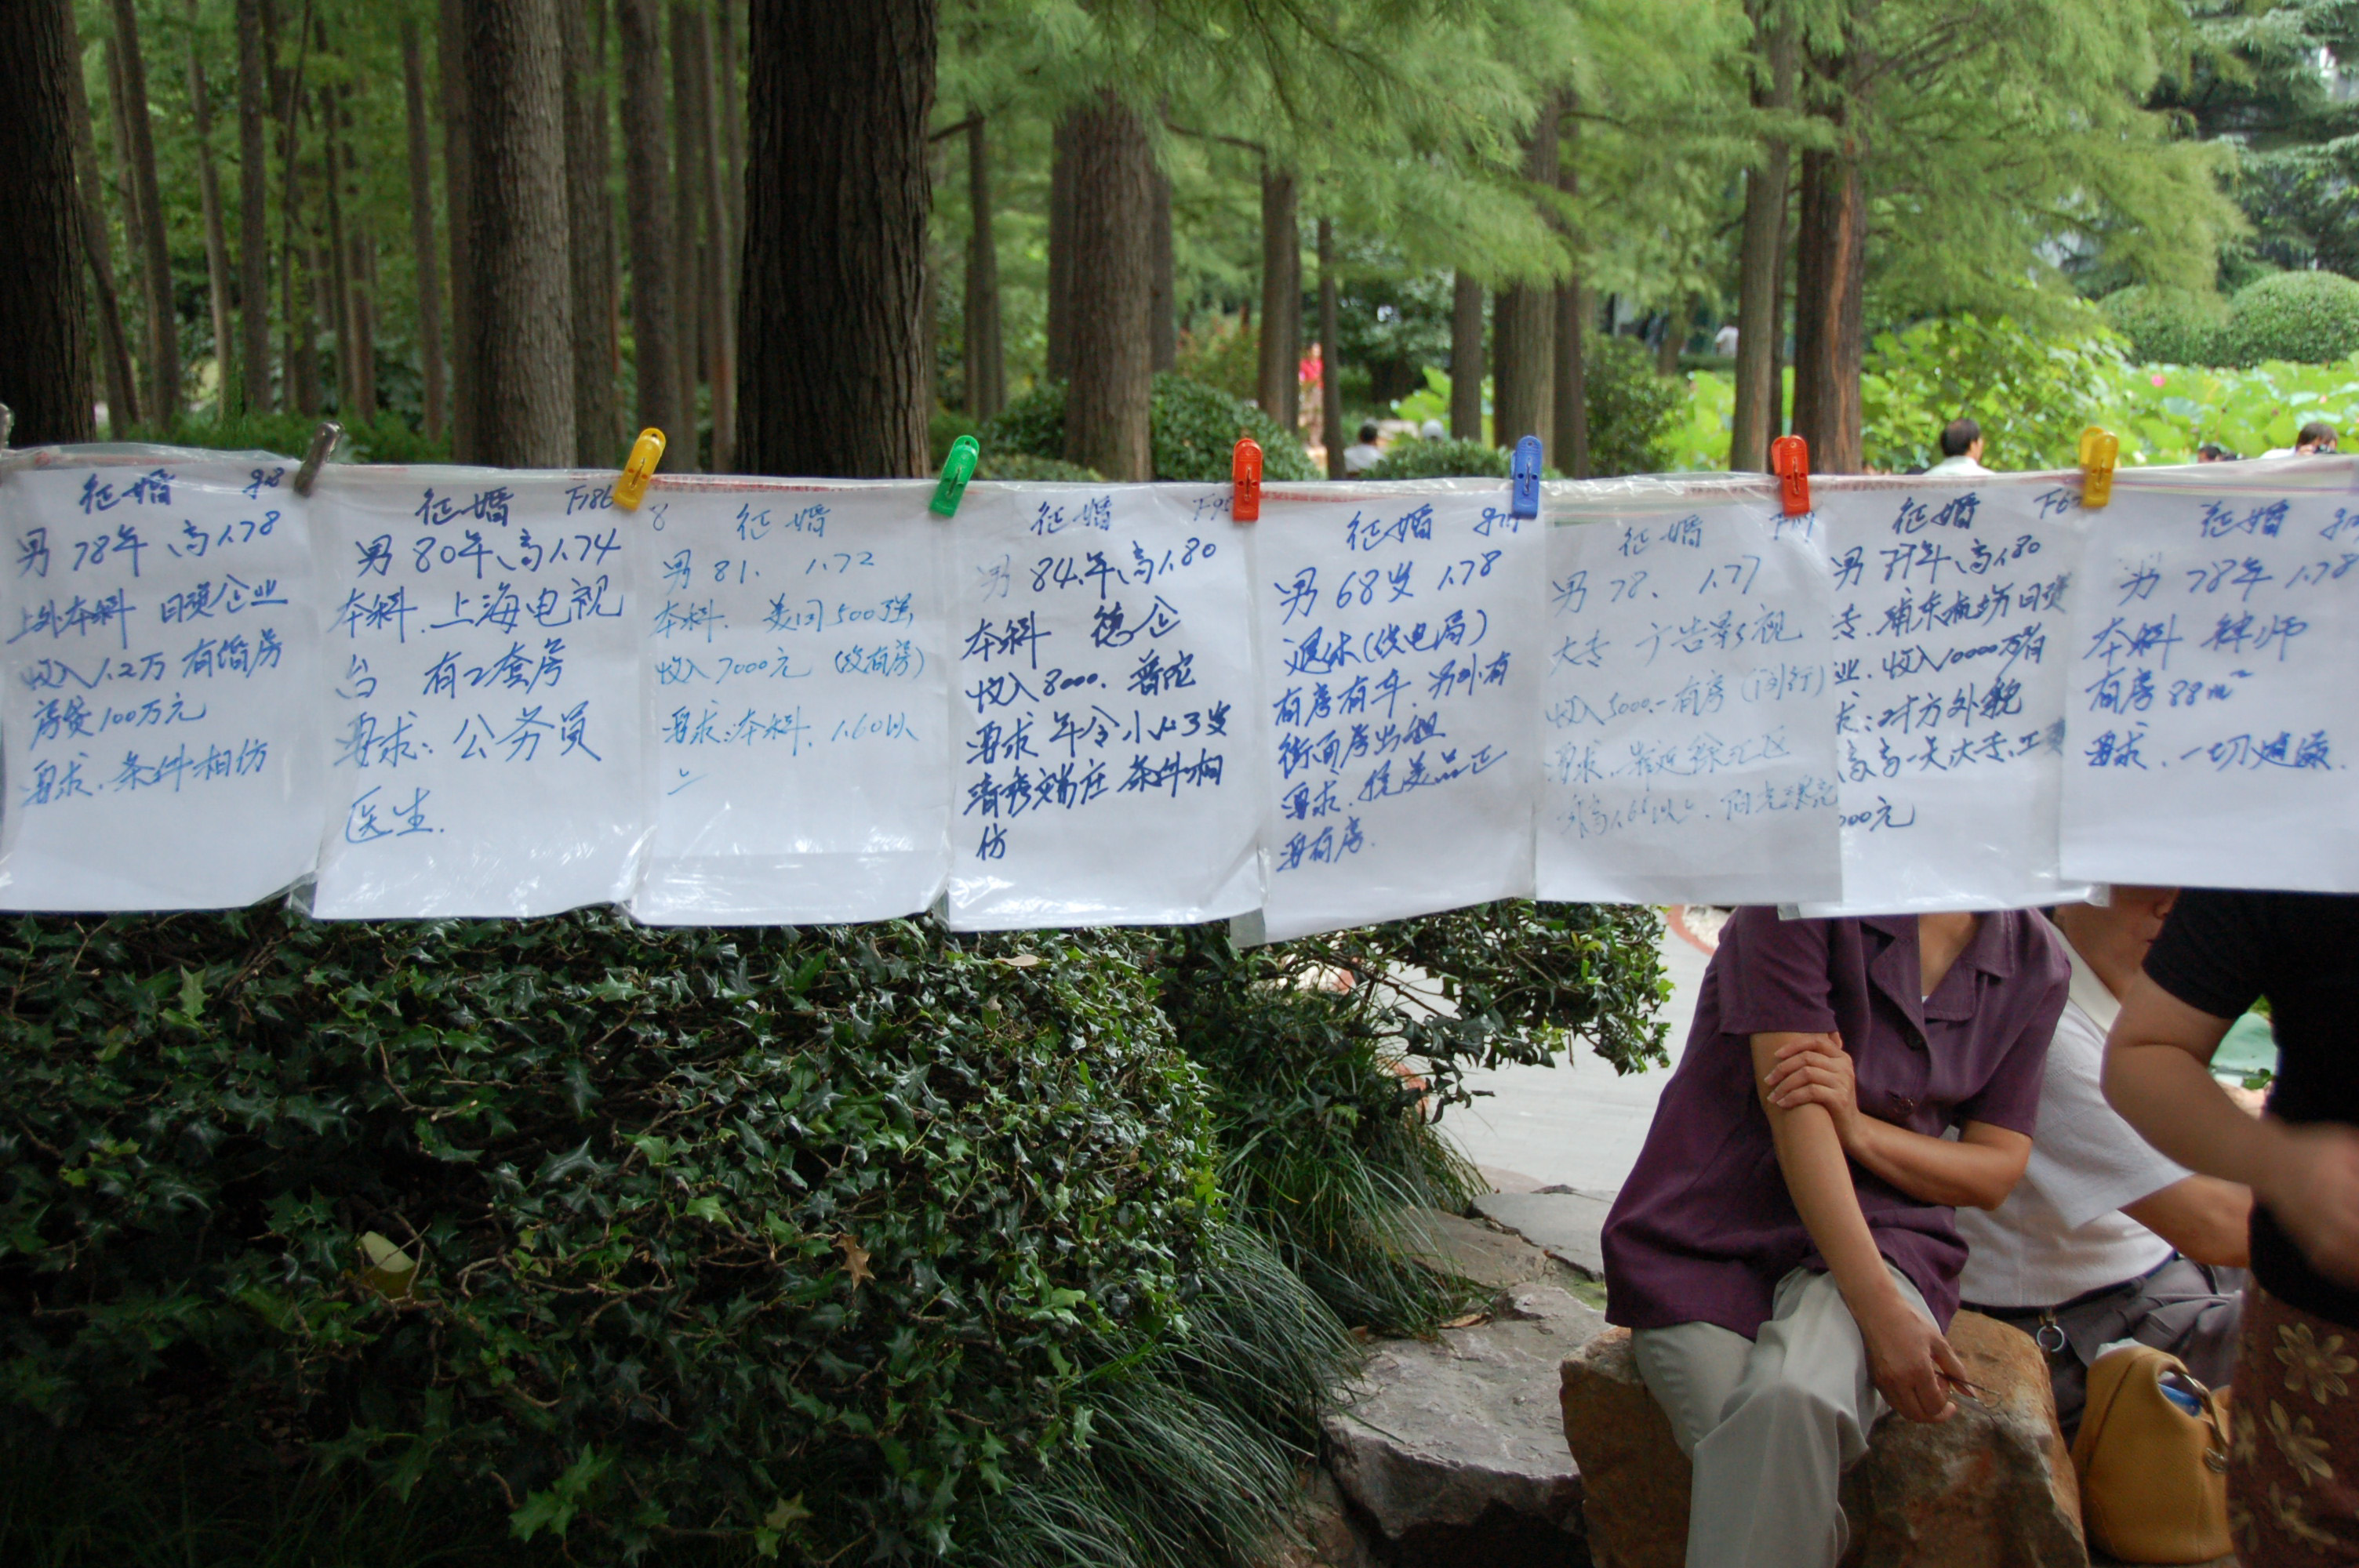 征婚
男 78年 高1.78
上外本科 日资企业
收入1.2万 有婚房
房贷100万元
要求.条件相仿
征婚 F186
男 80年、高1.74
本科.上海电视
台 有2套房
要求:公务员
医生.
8 征婚
男 81. 1.72
本科. 美国500强
收入7000元 (没有房)
要求:本科. 1.60以
上
征婚
男 84.年、高1.80
本科 德企
收入8000. 普陀
要求 年令小1-3岁
清秀端庄 条件相
仿
征婚
男 68岁 1.78
退休(供电局)
有房有车.另外有
街面房出租
要求.
要有房.
征婚
男 78. 1.77
大专 广告影视
收入5000.-有房(闵行)
要求.靠近徐汇区
身高1.65以上.阳光
征婚
男 年、高1.80
专.浦东机场日资
业.收入10000万有
求:对方外貌
高高一点大专.
000元
征婚
男 78年 1.78
本科 律师
有房88m²
要求.一切随缘.